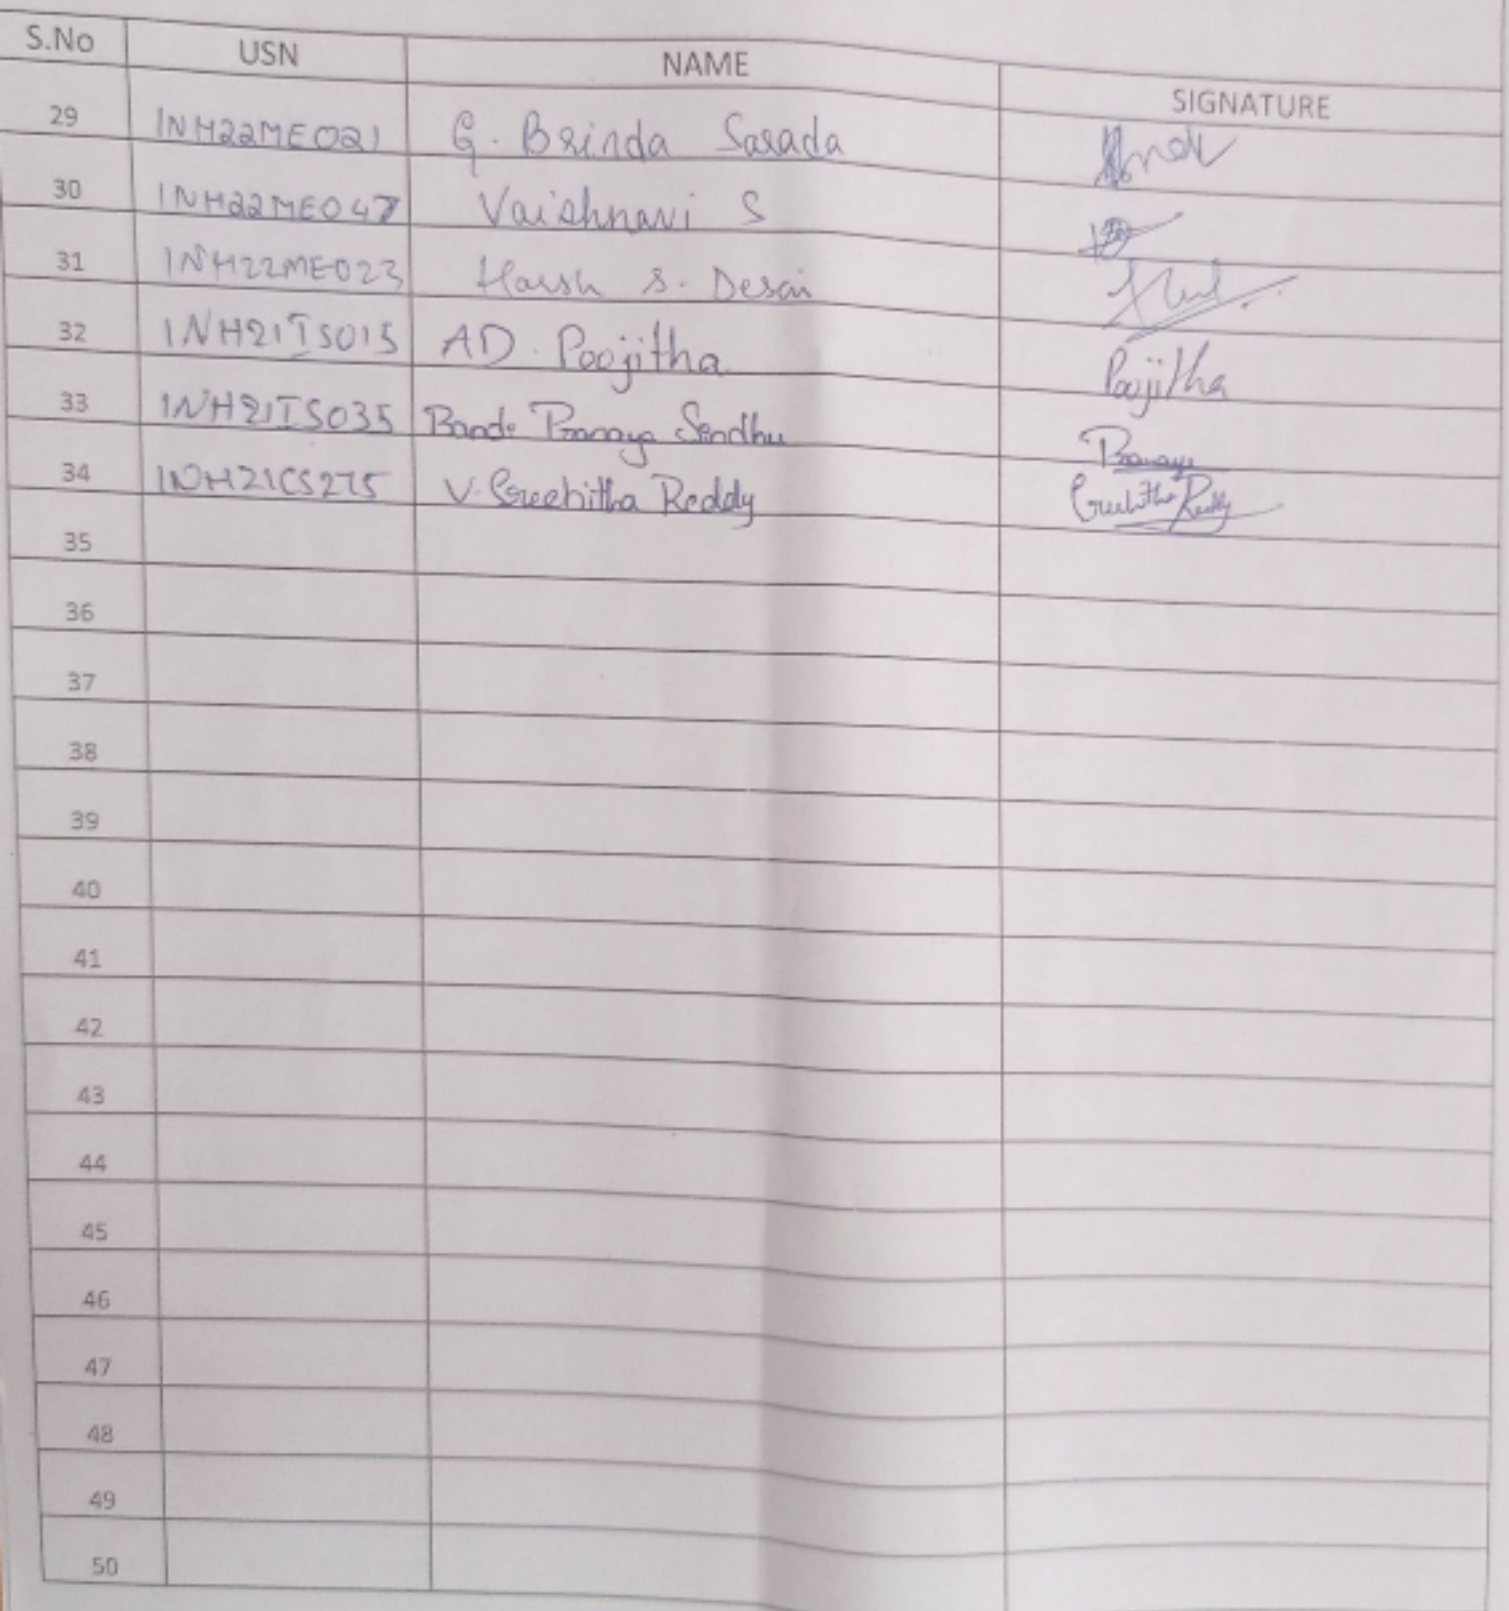 S.No USN NAME SIGNATURE
29 1NH22ME021 G. Brinda Sarada
30 1NH22ME047 Vaishnavi S
31 1NH22ME023 Harsh S. Desai
32 1NH21IS015 AD. Poojitha Poojitha
33 1NH21IS035 Bande Pranaya Sindhu Pranaya
34 1NH21CS275 V. Sreehitha Reddy Sreehitha Reddy
35
36
37
38
39
40
41
42
43
44
45
46
47
48
49
50